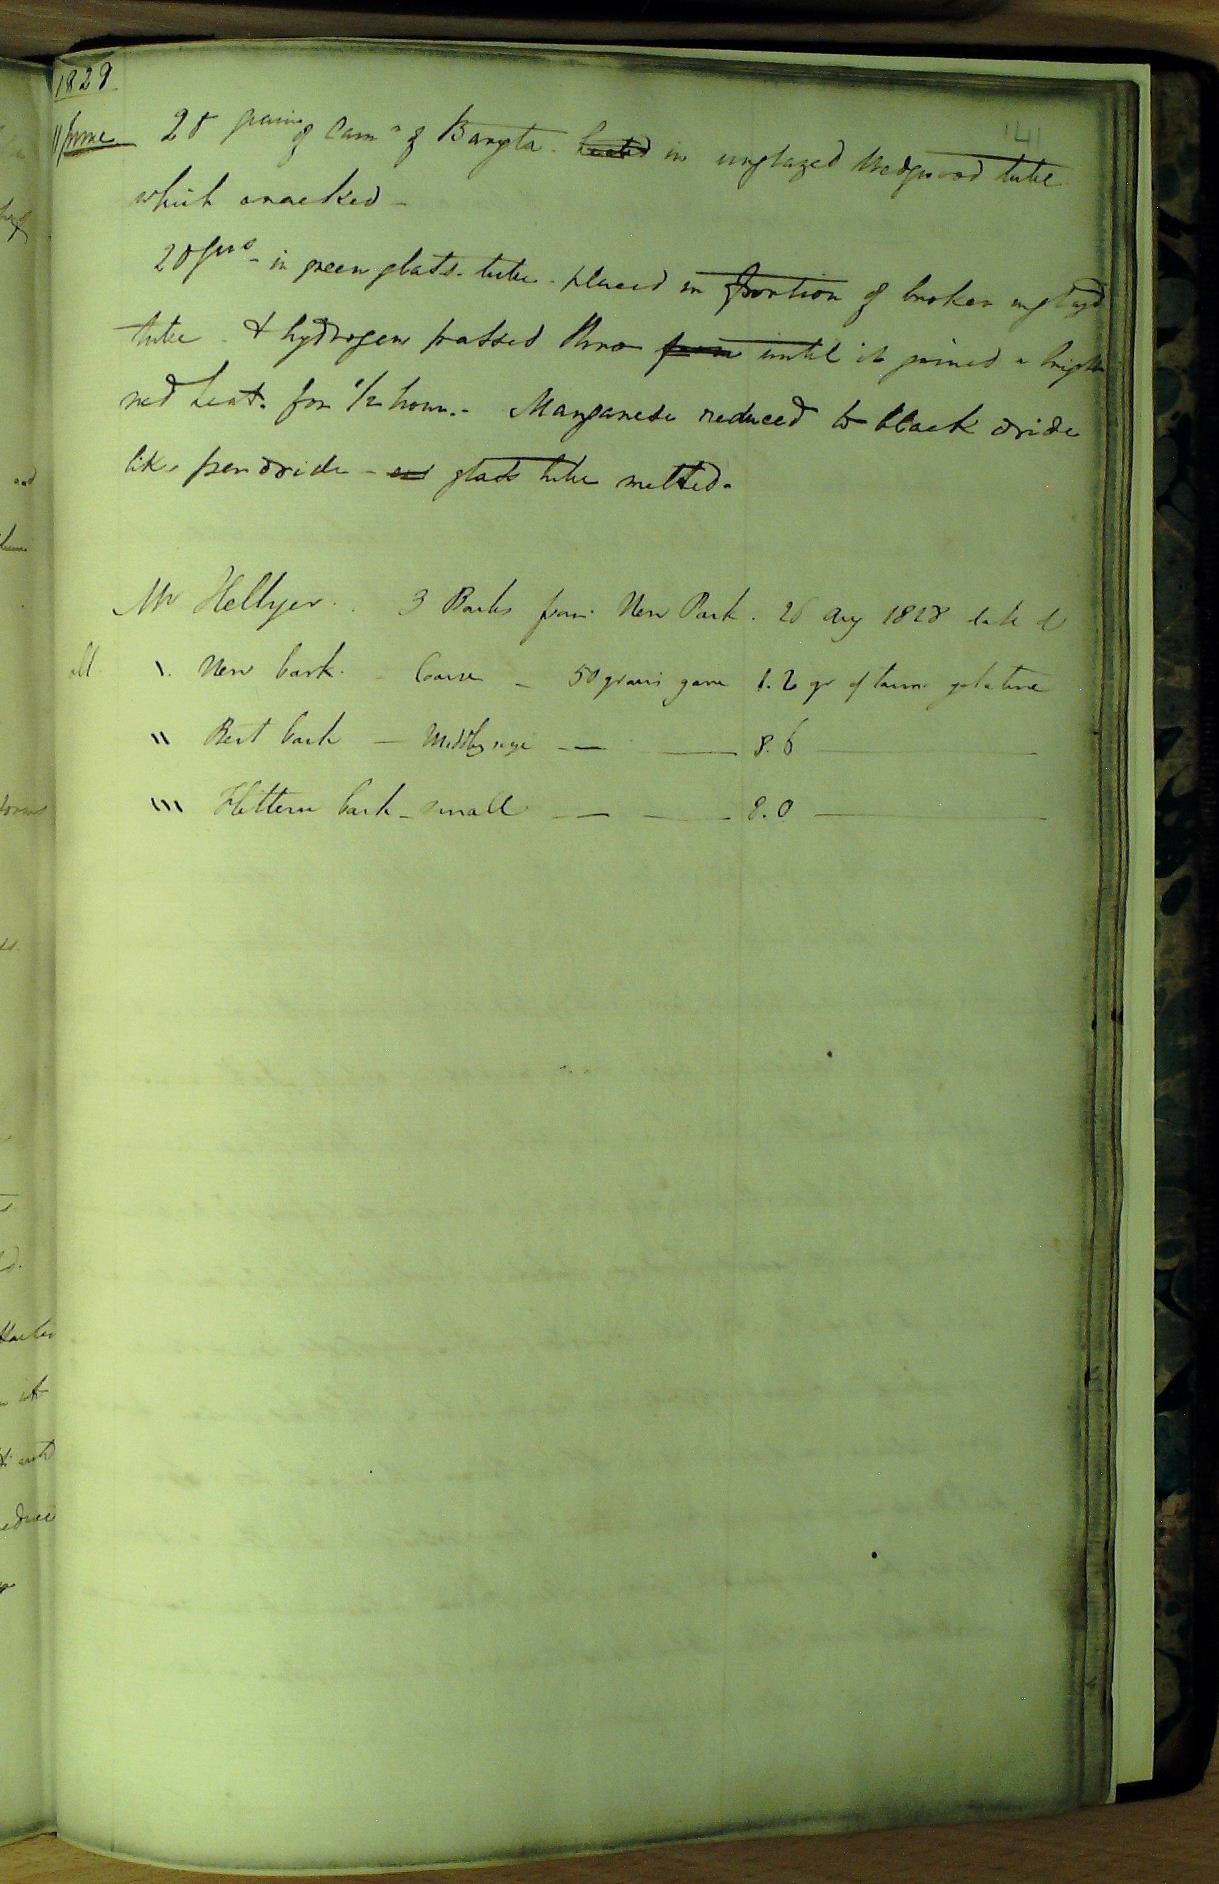 1829
11 June 20 grains of Cam^n of Baryta. heated in unglazed Wedgwood tube
which cracked -
20 grs - in green glass tube - placed in portion of broken unglazd
tube & hydrogen passed thro from until it joined a bright
red heat. for 1/2 hour. - Manganese reduced to black oxide
like peroxide - and glass tube melted.
Mr Hellyer. 3 Barks from New Park. 26 Aug 1828
1. New bark. - Coarse - 50 grains gave 1.2 gr of tann. gelatine
11 Best bark - Middling size - — 8.6 —
111 Flittern bark - small — — 8.0 —
141